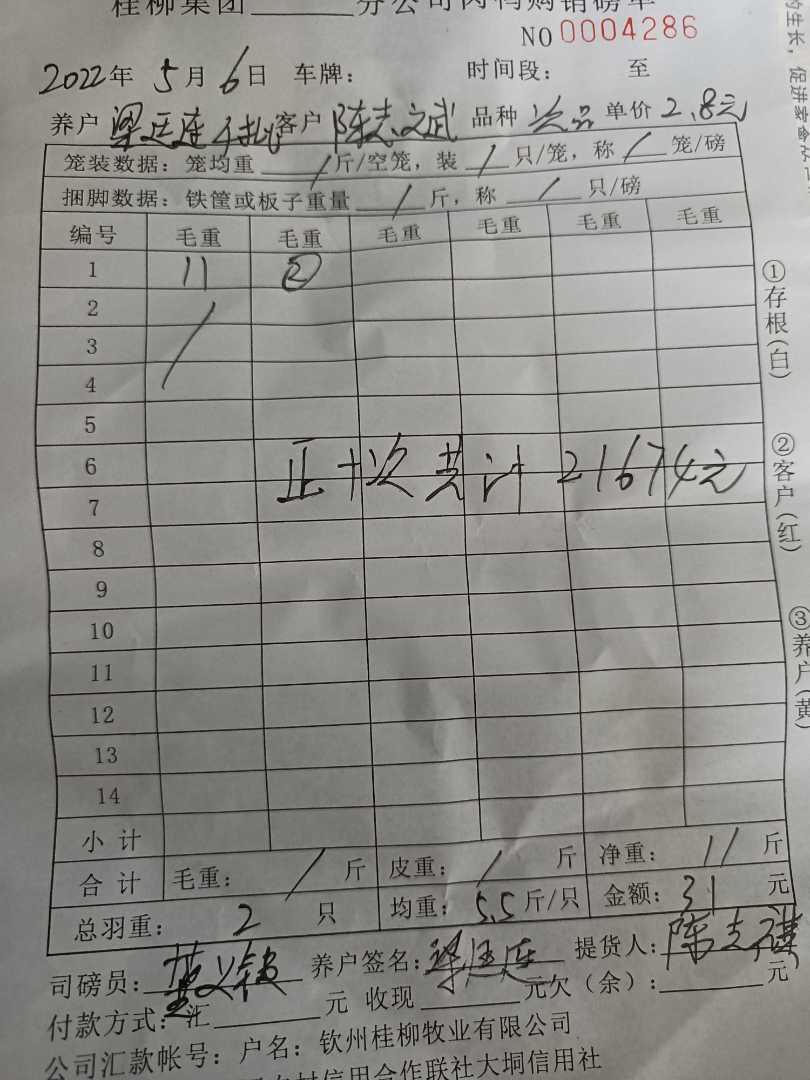 桂柳集团______分公司肉鸭购销磅单
NO 0004286
2022年 5月 6日 车牌: 时间段: 至
养户 客户 陈志武 品种 次品 单价 2.8元
笼装数据: 笼均重 / 斤/空笼, 装 / 只/笼, 称 / 笼/磅
捆脚数据: 铁筐或板子重量 / 斤, 称 / 只/磅
编号 毛重 毛重 毛重 毛重 毛重 毛重
1 11 ②
2 /
3
4
5
6 正+次共计 21674元
7
8
9
10
11
12
13
14
小计
合计 毛重: / 斤 皮重: / 斤 净重: 11 斤
总羽重: 2 只 均重: 5.5 斤/只 金额: 31 元
司磅员: 养户签名: 提货人: 陈志
付款方式: 汇______元 收现______元欠(余):______元
公司汇款帐号: 户名: 钦州桂柳牧业有限公司
村信用合作联社大垌信用社
①存根(白)
②客户(红)
③养户(黄)
的生长, 促进